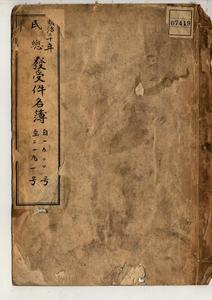 明治三十年
民總發受件名簿
自一九〇〇号
至二一九一号
07419